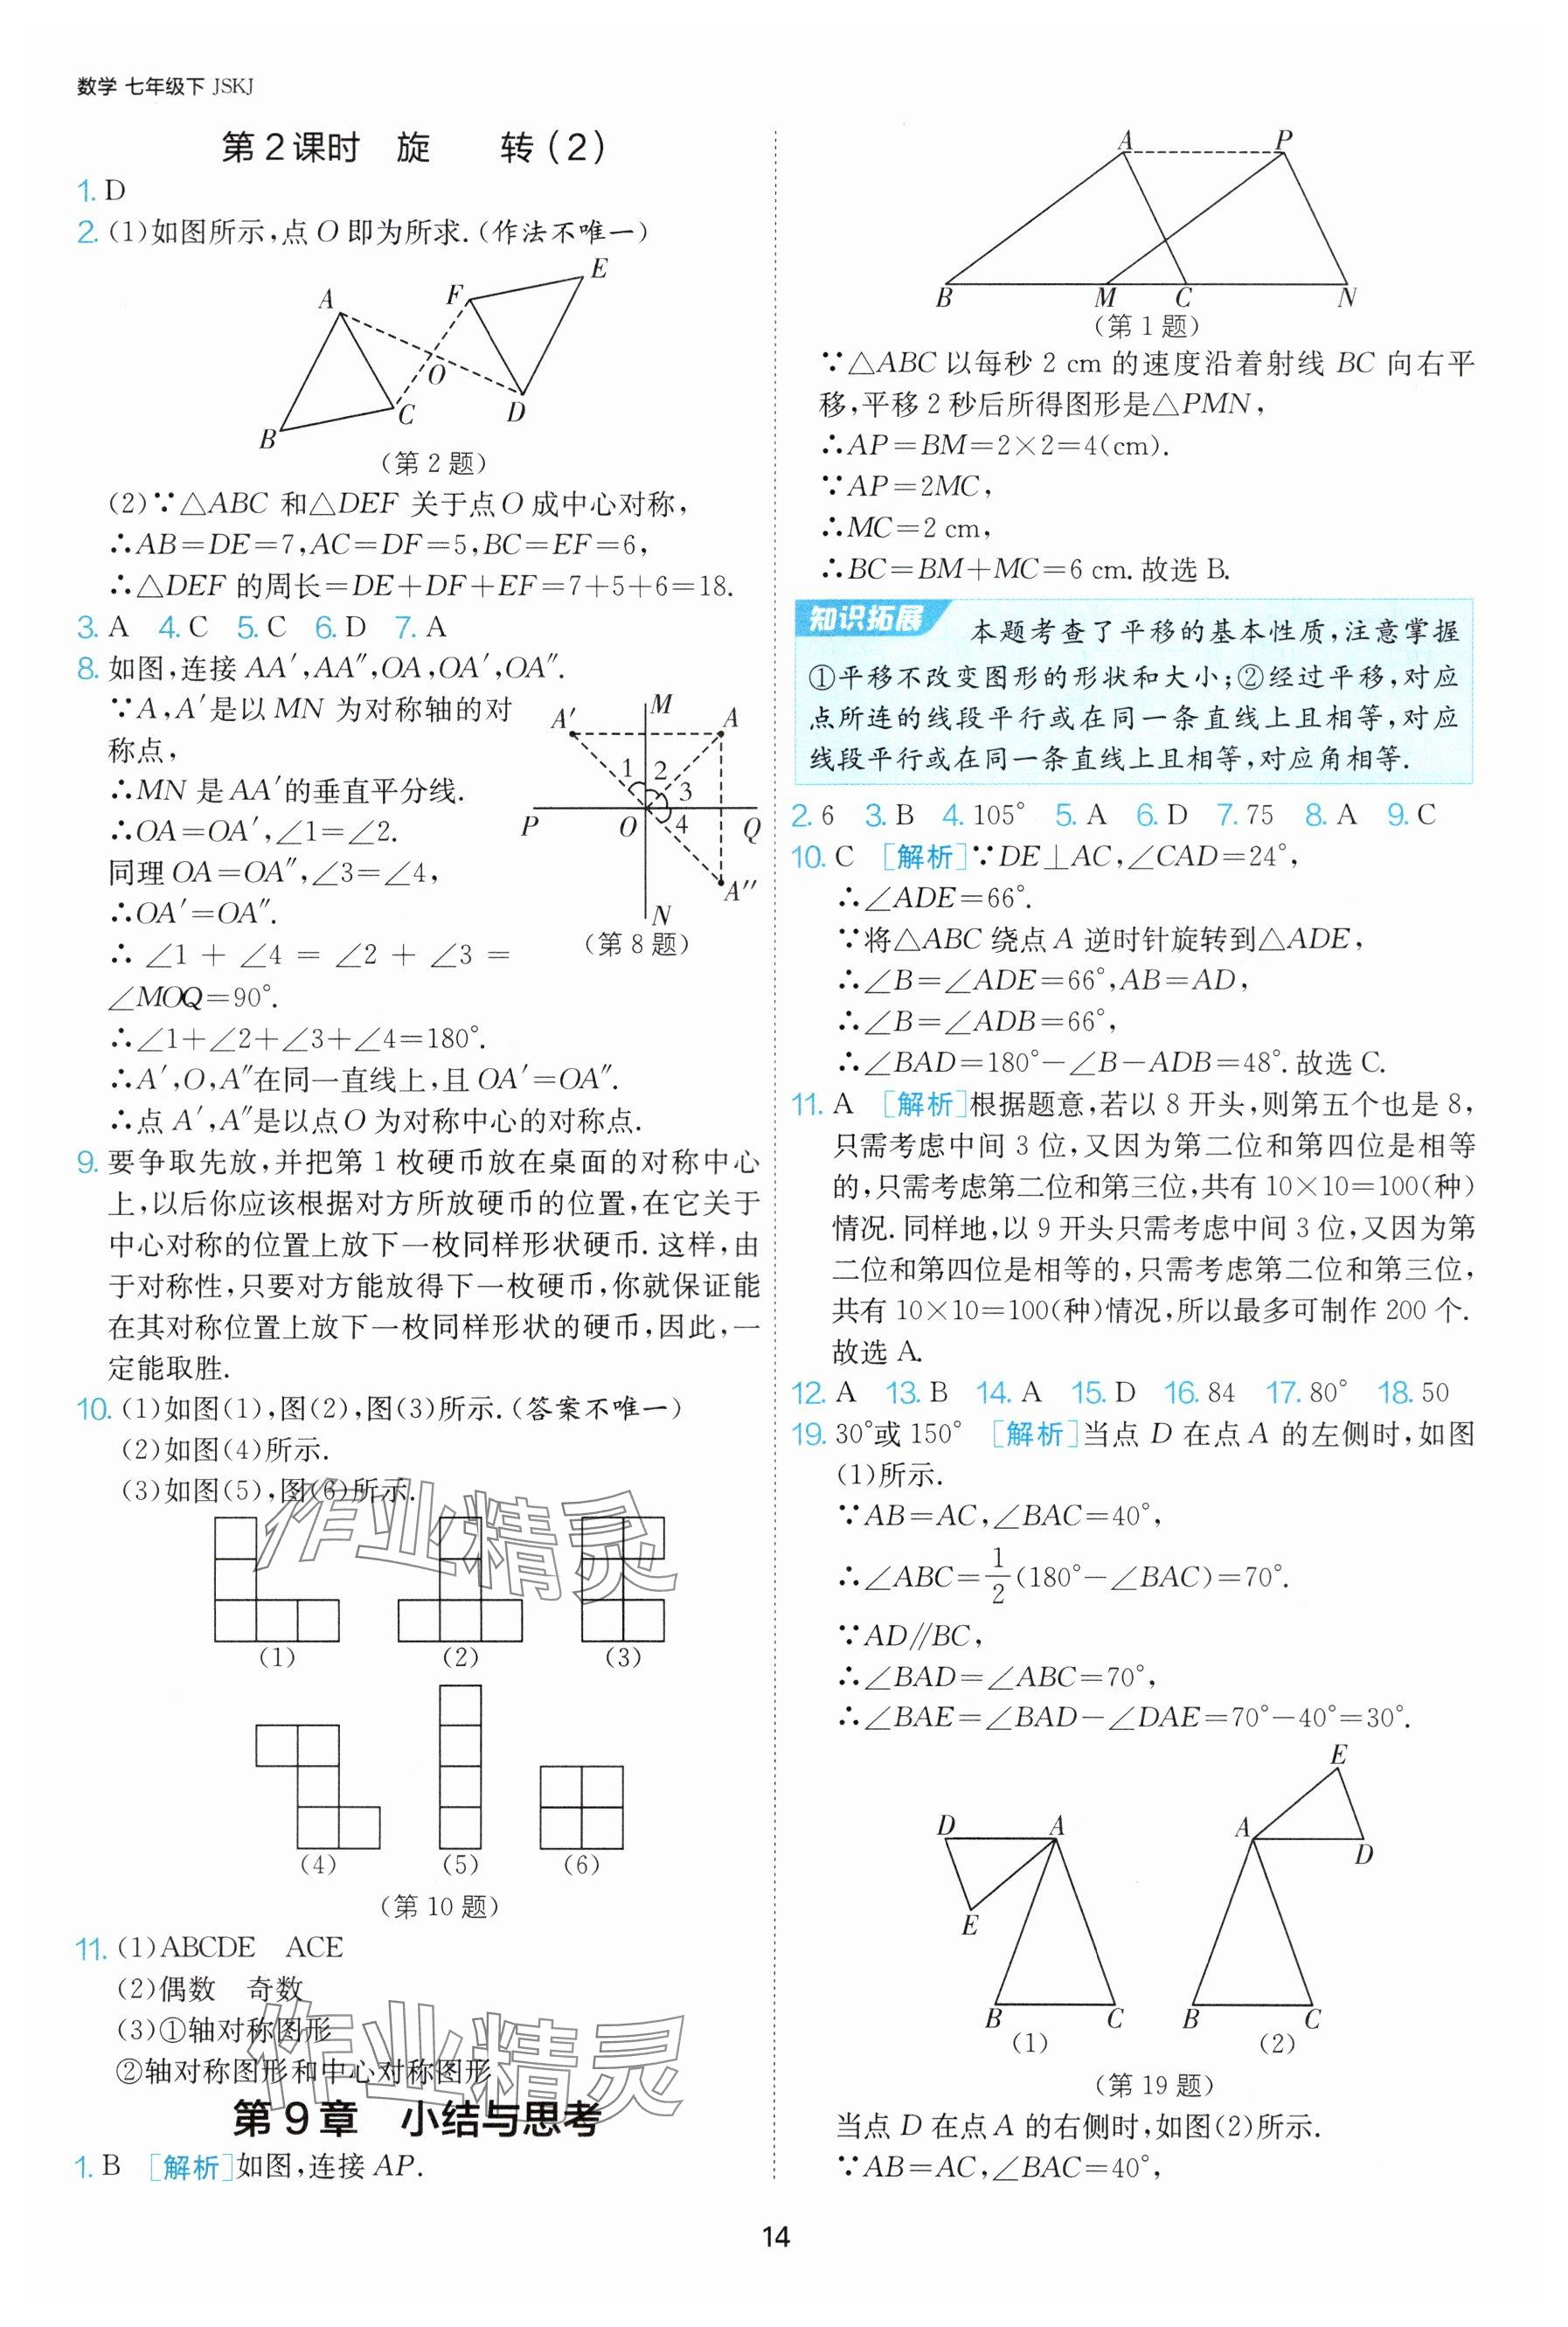 数学 七年级下 JSKJ
第2课时 旋 转(2)
1. D
2. (1)如图所示,点O即为所求.(作法不唯一)
A
F
E
O
C
D
B
(第2题)
(2)∵△ABC 和△DEF 关于点O成中心对称,
∴AB=DE=7,AC=DF=5,BC=EF=6,
∴△DEF 的周长=DE+DF+EF=7+5+6=18.
3. A 4. C 5. C 6. D 7. A
8. 如图,连接AA′,AA″,OA,OA′,OA″.
∵A,A′是以MN 为对称轴的对
称点,
∴MN 是AA′的垂直平分线.
∴OA=OA′,∠1=∠2.
同理OA=OA″,∠3=∠4,
∴OA′=OA″.
∴ ∠1 + ∠4 = ∠2 + ∠3 =
∠MOQ=90°.
∴∠1+∠2+∠3+∠4=180°.
∴A′,O,A″在同一直线上,且OA′=OA″.
∴点A′,A″是以点O为对称中心的对称点.
A′
M
A
1
2
3
4
P
O
Q
A″
N
(第8题)
9. 要争取先放,并把第1枚硬币放在桌面的对称中心
上,以后你应该根据对方所放硬币的位置,在它关于
中心对称的位置上放下一枚同样形状硬币.这样,由
于对称性,只要对方能放得下一枚硬币,你就保证能
在其对称位置上放下一枚同样形状的硬币,因此,一
定能取胜.
10. (1)如图(1),图(2),图(3)所示.(答案不唯一)
(2)如图(4)所示.
(3)如图(5),图(6)所示.
作业精灵
(1)
(2)
(3)
(4)
(5)
(6)
(第10题)
11. (1)ABCDE ACE
(2)偶数 奇数
(3)①轴对称图形
②轴对称图形和中心对称图形
作业精灵
第9章 小结与思考
1. B [解析]如图,连接AP.
A
P
B
M
C
N
(第1题)
∵△ABC以每秒2 cm的速度沿着射线BC向右平
移,平移2秒后所得图形是△PMN,
∴AP=BM=2×2=4(cm).
∵AP=2MC,
∴MC=2 cm,
∴BC=BM+MC=6 cm.故选B.
知识拓展 本题考查了平移的基本性质,注意掌握
①平移不改变图形的形状和大小;②经过平移,对应
点所连的线段平行或在同一条直线上且相等,对应
线段平行或在同一条直线上且相等,对应角相等.
2. 6 3. B 4. 105° 5. A 6. D 7. 75 8. A 9. C
10. C [解析]∵DE⊥AC,∠CAD=24°,
∴∠ADE=66°.
∵将△ABC绕点A逆时针旋转到△ADE,
∴∠B=∠ADE=66°,AB=AD,
∴∠B=∠ADB=66°,
∴∠BAD=180°-∠B-ADB=48°.故选C.
11. A [解析]根据题意,若以8开头,则第五个也是8,
只需考虑中间3位,又因为第二位和第四位是相等
的,只需考虑第二位和第三位,共有10×10=100(种)
情况.同样地,以9开头只需考虑中间3位,又因为第
二位和第四位是相等的,只需考虑第二位和第三位,
共有10×10=100(种)情况,所以最多可制作200个.
故选A.
12. A 13. B 14. A 15. D 16. 84 17. 80° 18. 50
19. 30°或150° [解析]当点D在点A的左侧时,如图
(1)所示.
∵AB=AC,∠BAC=40°,
∴∠ABC=1/2(180°-∠BAC)=70°.
∵AD∥BC,
∴∠BAD=∠ABC=70°,
∴∠BAE=∠BAD-∠DAE=70°-40°=30°.
D
A
E
B
C
(1)
E
A
D
B
C
(2)
(第19题)
当点D在点A的右侧时,如图(2)所示.
∵AB=AC,∠BAC=40°,
14